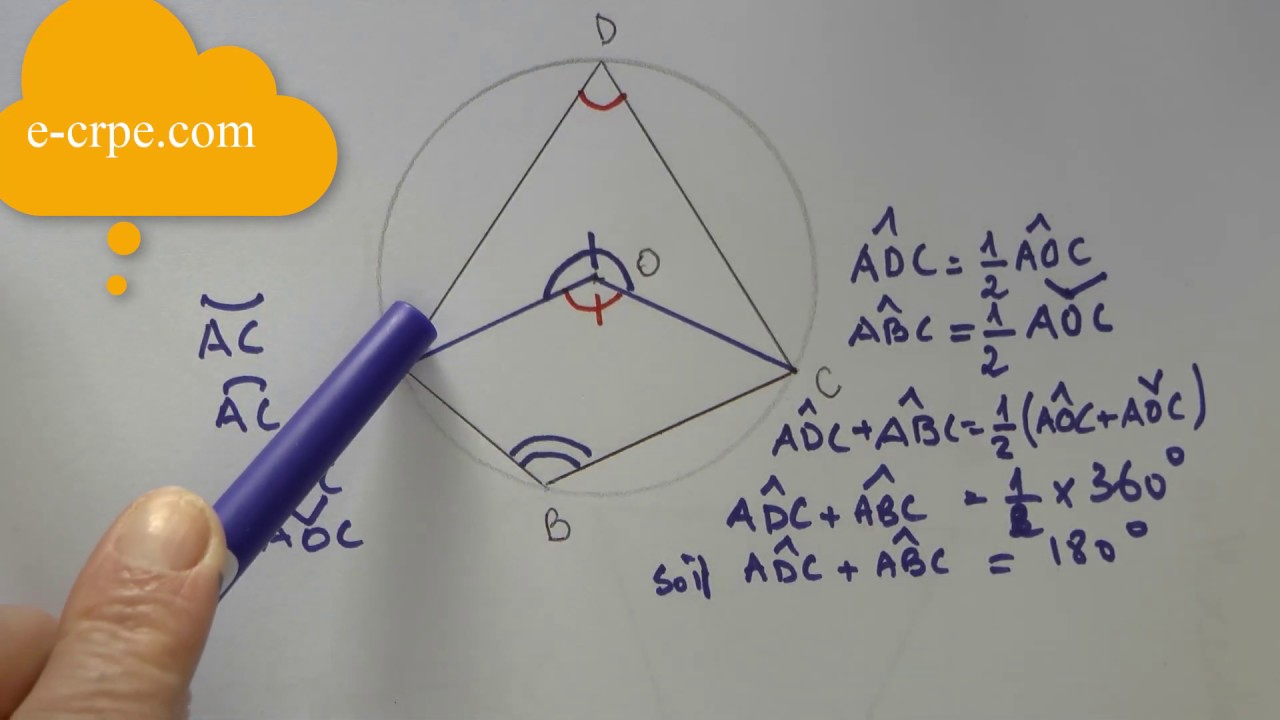 e-crpe.com
D
O
C
B
A͝C
A͡C
AǑC
AD̂C = 1/2 AÔC
AB̂C = 1/2 AǑC
AD̂C + AB̂C = 1/2 (AÔC + AǑC)
AD̂C + AB̂C = 1/2 × 360°
soit AD̂C + AB̂C = 180°